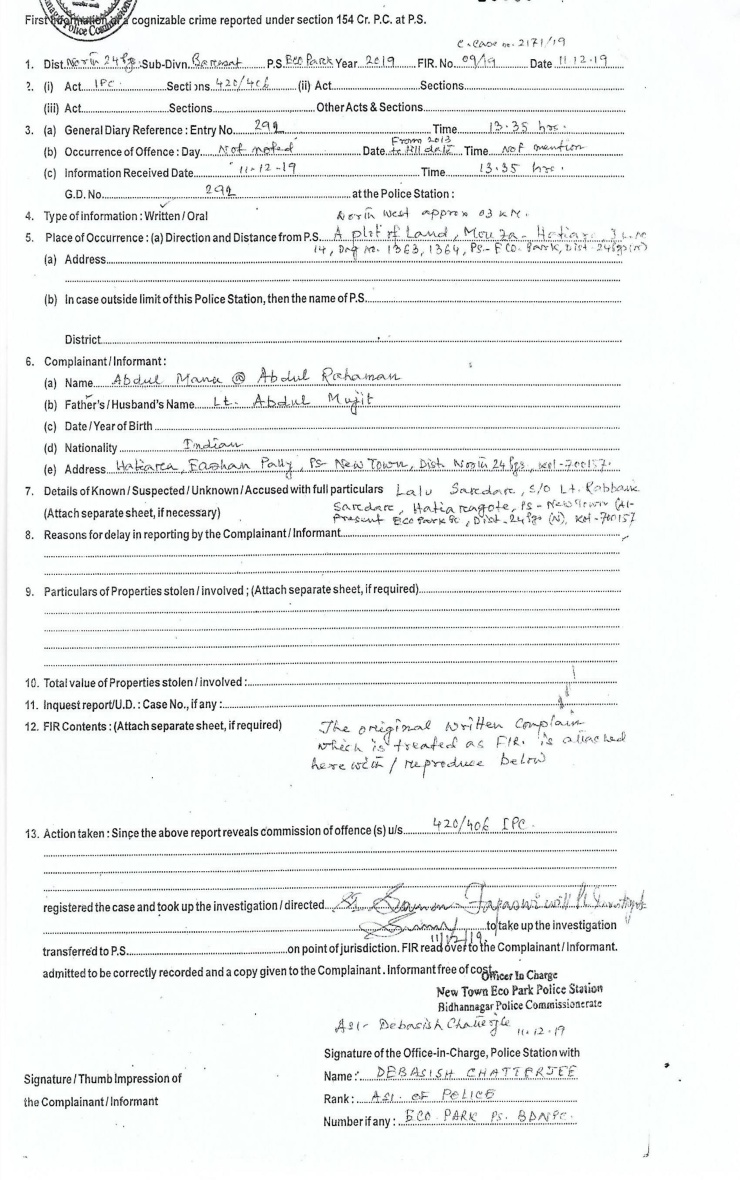 Police Commis
First Information of a cognizable crime reported under section 154 Cr. P.C. at P.S.
C. Case no. 2171/19
1. Dist. North 24 Pgs. Sub-Divn. Barasat P.S. Eco Park Year 2019 FIR. No. 09/19 Date 11.12.19
2. (i) Act IPC Sections 420/406 (ii) Act Sections
(iii) Act Sections Other Acts & Sections
3. (a) General Diary Reference : Entry No. 292 Time 13.35 hrs.
(b) Occurrence of Offence : Day Not noted Date From 2013 to till date Time Not mention
(c) Information Received Date 11-12-19 Time 13.35 hrs.
G.D. No. 292 at the Police Station :
4. Type of information : Written / Oral North West approx 03 KM.
5. Place of Occurrence : (a) Direction and Distance from P.S. A plot of Land, Mouza - Hatiara
14, Dag no. 1363, 1364, Ps - ECO. Park, Dist - 24 Pgs (N)
(a) Address
(b) In case outside limit of this Police Station, then the name of P.S.
District
6. Complainant / Informant :
(a) Name Abdul Mana @ Abdul Rahaman
(b) Father's / Husband's Name Lt. Abdul Mujit
(c) Date / Year of Birth
(d) Nationality Indian
(e) Address Hatiara, Eashan Pally, PS New Town, Dist. North 24 Pgs, Kol-700157.
7. Details of Known / Suspected / Unknown / Accused with full particulars Lalu Saredare, S/O Lt. Rabbani
(Attach separate sheet, if necessary) Saredare, Hatiaragote, PS - New Town (At-
Present Eco Park PS, Dist - 24 Pgs (N), Kol-700157
8. Reasons for delay in reporting by the Complainant / Informant
9. Particulars of Properties stolen / involved ; (Attach separate sheet, if required)
10. Total value of Properties stolen / involved :
11. Inquest report/U.D. : Case No., if any :
12. FIR Contents : (Attach separate sheet, if required) The original written complain
which is treated as FIR. is attached
here with / reproduce below
13. Action taken : Since the above report reveals commission of offence (s) u/s 420/406 IPC.
registered the case and took up the investigation / directed
to take up the investigation
11/12/19
transferred to P.S. on point of jurisdiction. FIR read over to the Complainant / Informant.
admitted to be correctly recorded and a copy given to the Complainant . Informant free of cost
Officer In Charge
New Town Eco Park Police Station
Bidhannagar Police Commissionerate
ASI- Debasish Chatterjee 11.12.19
Signature of the Office-in-Charge, Police Station with
Signature / Thumb Impression of
the Complainant / Informant
Name : DEBASISH CHATTERJEE
Rank : ASI. OF POLICE
Number if any : ECO PARK PS. BDNPC.